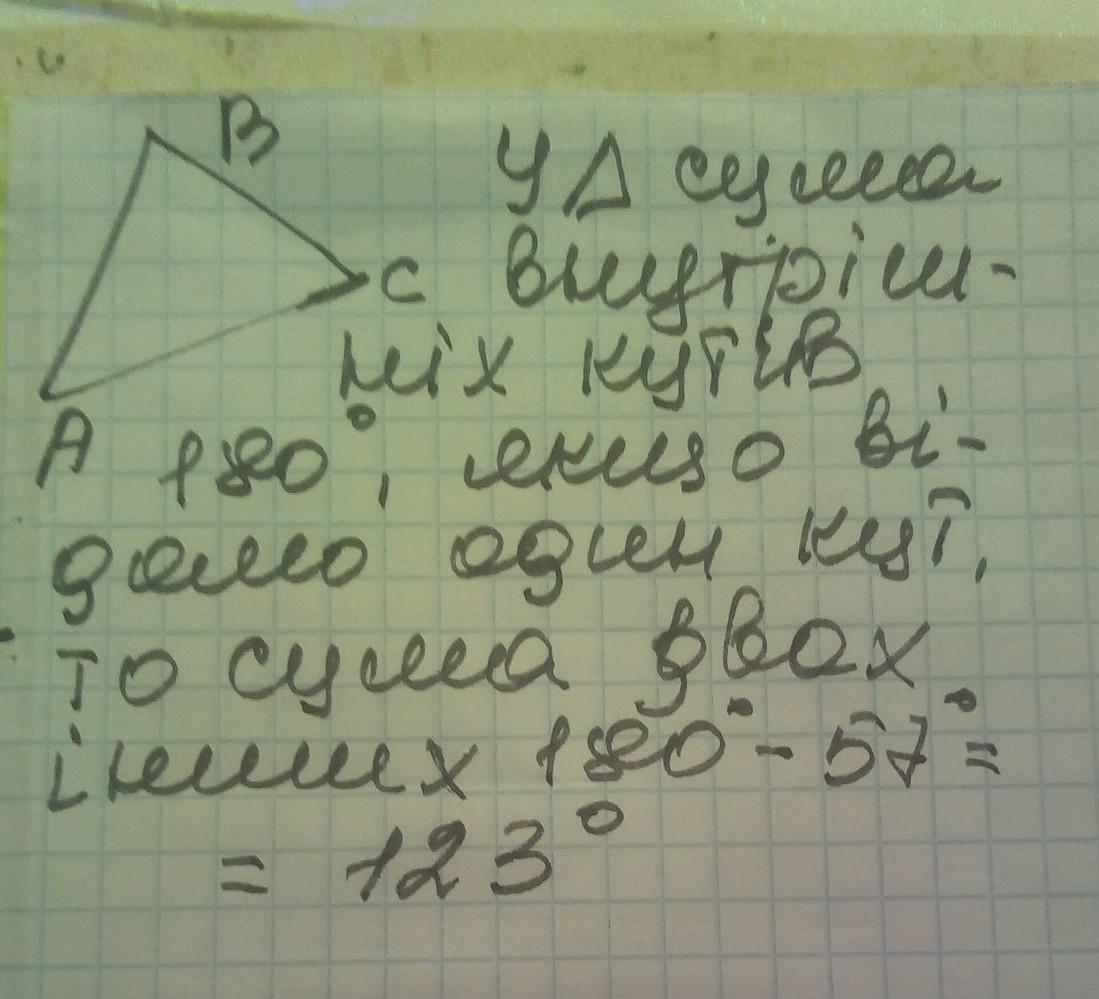 B
У Δ сума
C внутріш-
ніх кутів
A 180°, якщо ві-
домо один кут,
то сума двох
інших 180° - 57° =
= 123°